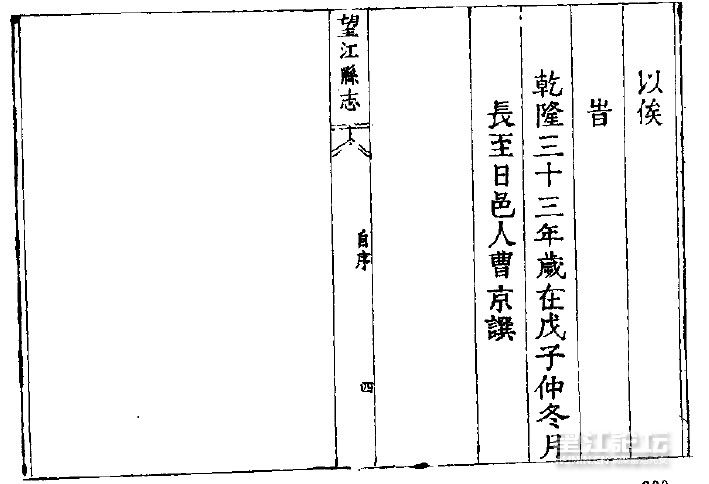 以俟
旹
乾隆三十三年歲在戊子仲冬月
長至日邑人曹京譔
望江縣志
自序
四
望江論壇